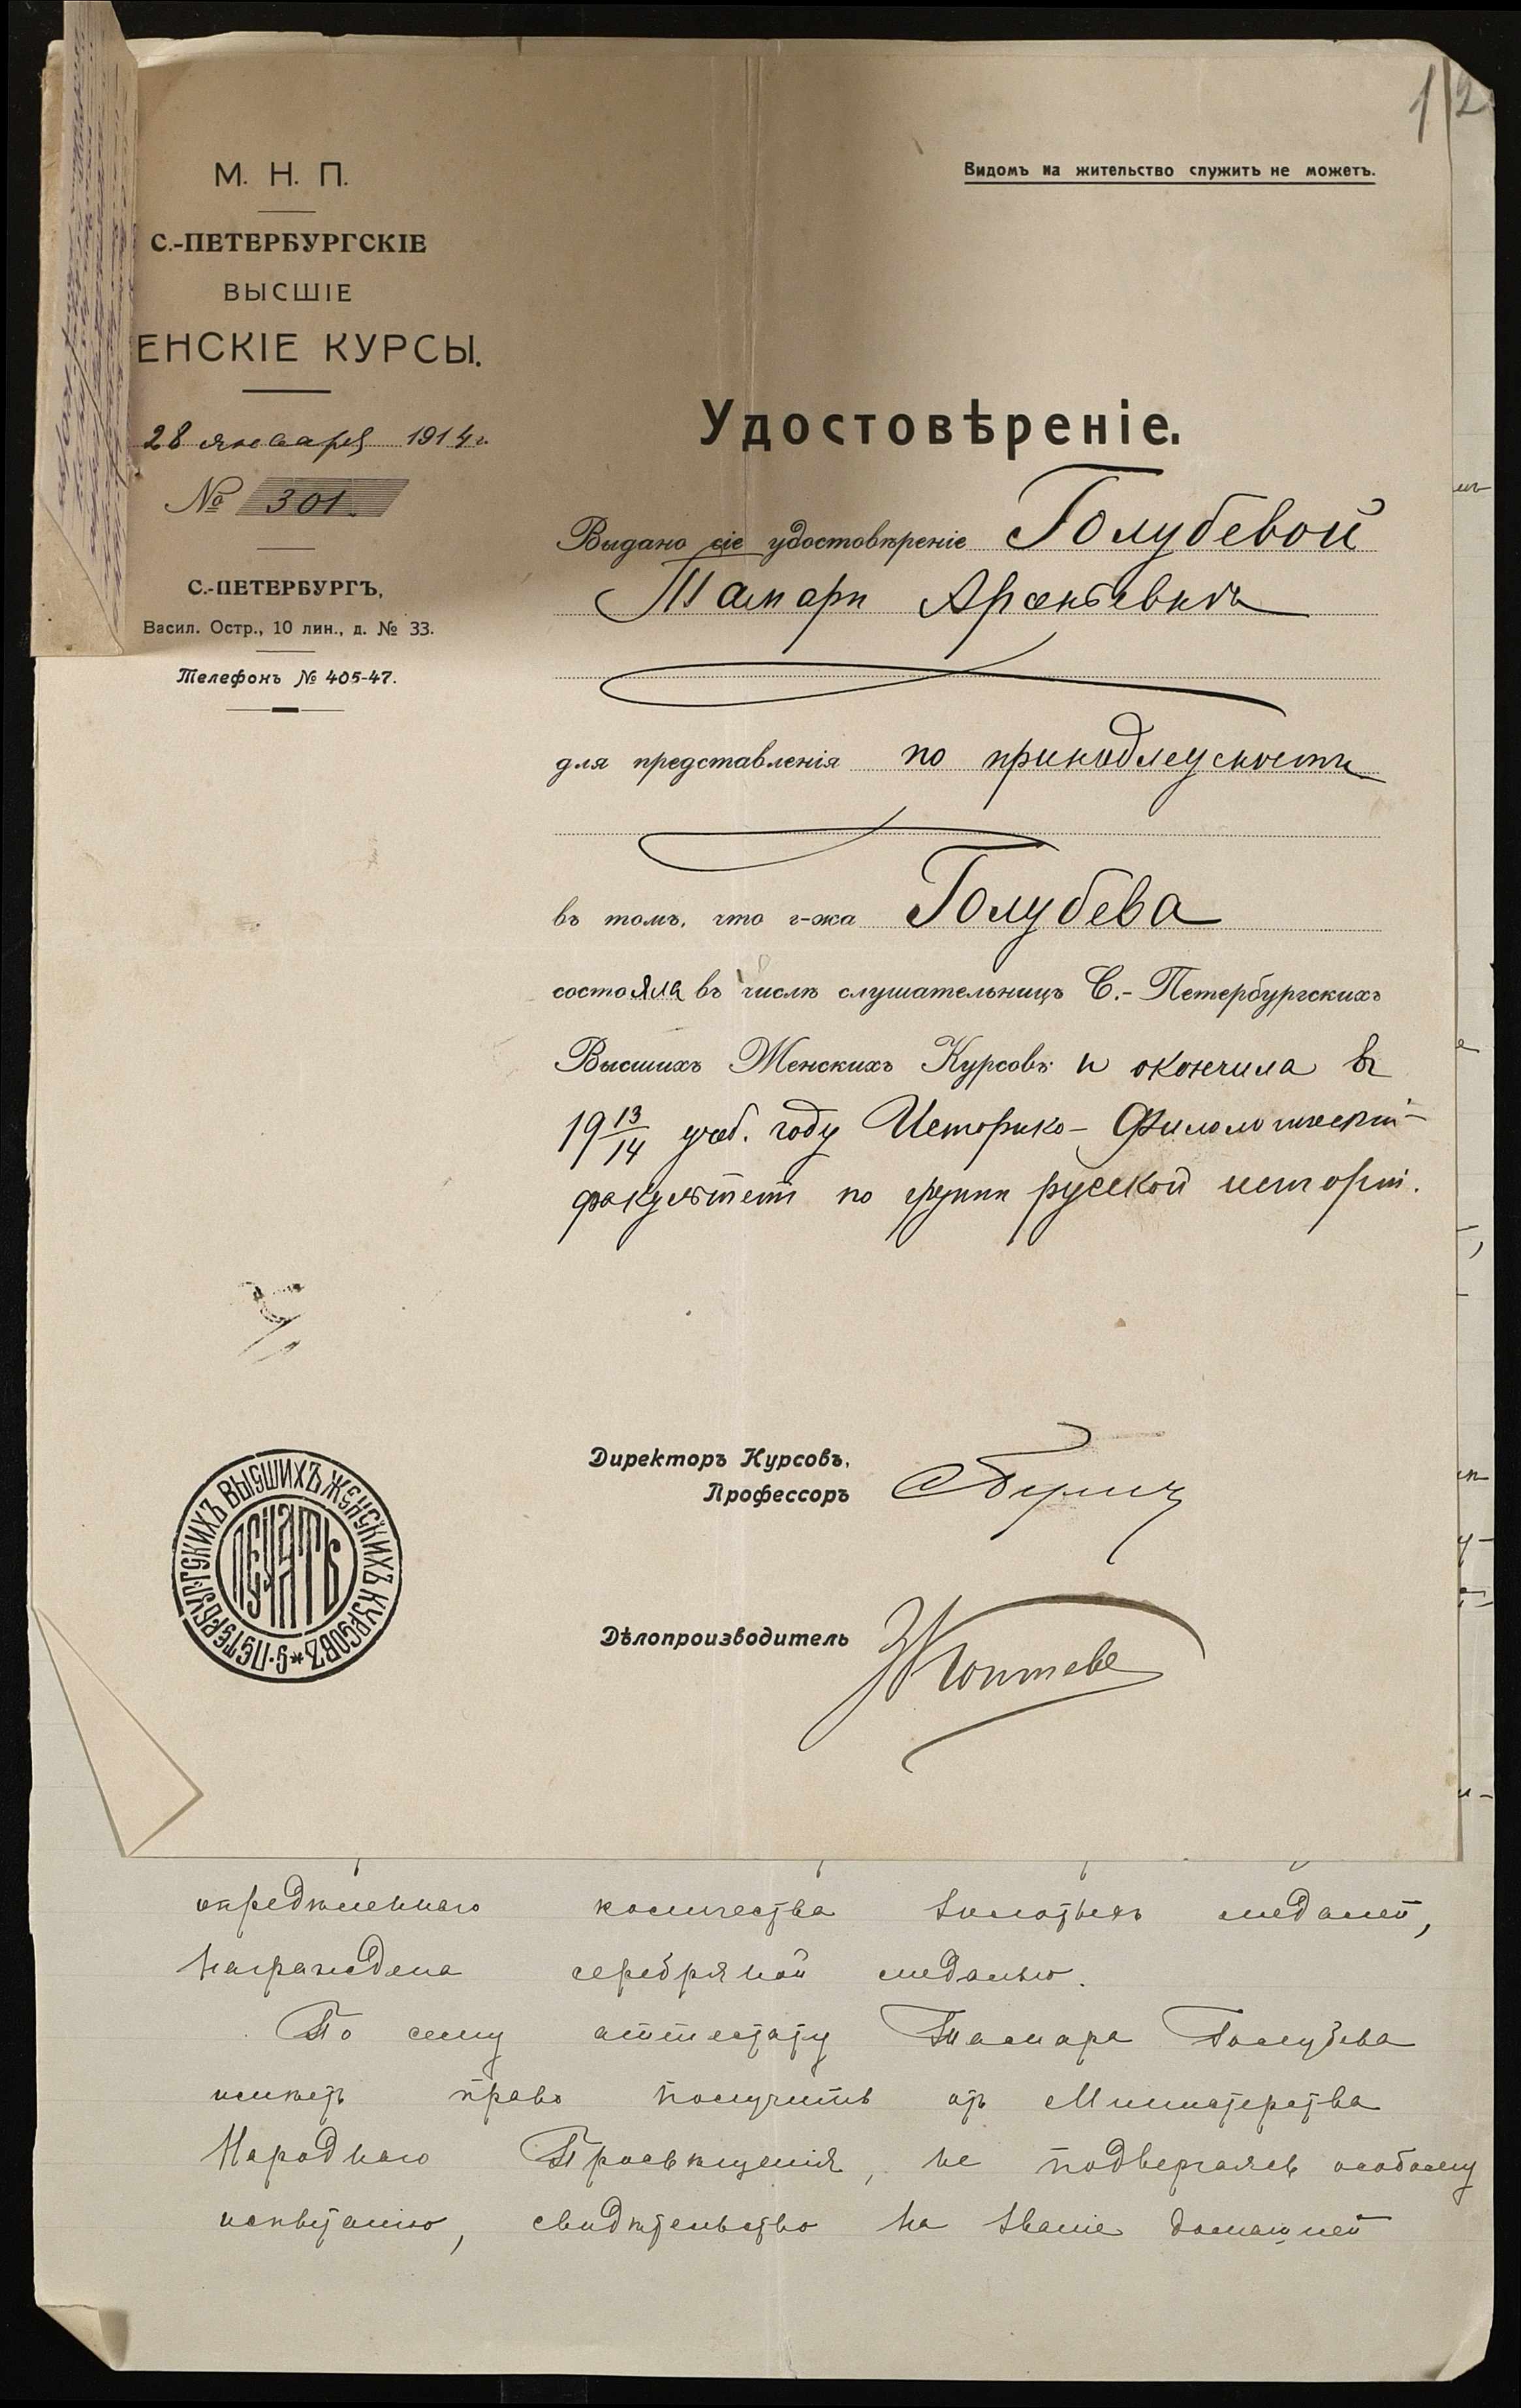 1
2
М. Н. П.
С.-ПЕТЕРБУРГСКІЕ
ВЫСШІЕ
ЕНСКІЕ КУРСЫ.
28 января 1914 г.
№ 301.
С.-ПЕТЕРБУРГЪ,
Васил. Остр., 10 лин., д. № 33.
Телефонъ № 405-47.
Видомъ на жительство служить не можетъ.
Удостовѣреніе.
Выдано сіе удостовѣреніе Голубевой
Тамарѣ Арсеньевнѣ
для представленія по принадлежности
въ томъ, что г-жа Голубева
состояла въ числѣ слушательницъ С.-Петербургскихъ
Высшихъ Женскихъ Курсовъ и окончила въ
19 13/14 учеб. году Историко-Филологическій
факультетъ по группѣ русской исторіи.
Директоръ Курсовъ,
Профессоръ
Дѣлопроизводитель
С.-ПЕТЕРБУРГСКИХЪ ВЫСШИХЪ ЖЕНСКИХЪ КУРСОВЪ *
ПЕЧАТЬ
опредѣленнаго количества золотыхъ медалей,
награждена серебряной медалью.
По сему аттестату Тамара Голубева
имѣетъ право получить отъ Министерства
Народнаго Просвѣщенія, не подвергаясь особому
испытанію, свидѣтельство на званіе домашней